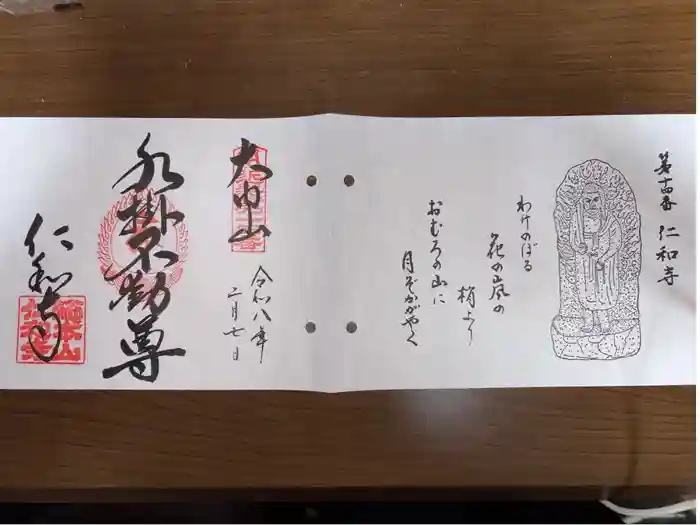 第十四番 仁和寺
わけのぼる
花の嵐の
梢より
おむろの山に
月ぞかがやく
大内山
令和八年
二月七日
水掛不動尊
仁和寺